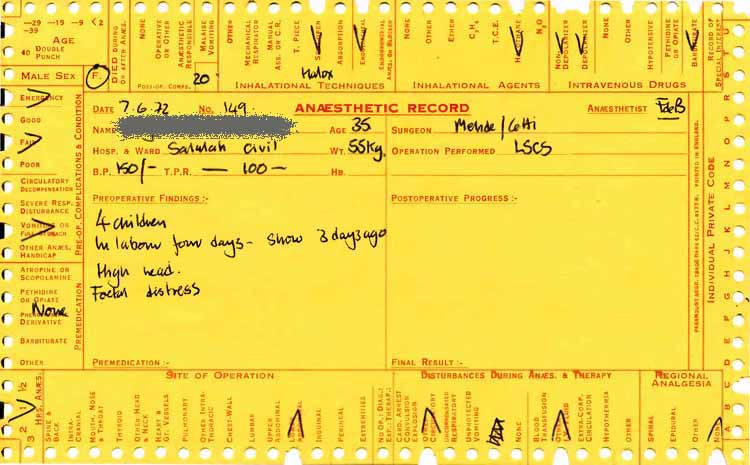 -29 -19 -9 <2
-39
AGE
40 DOUBLE PUNCH
MALE SEX F.
DIED DURING OR AFTER ANÆS.
NONE
OPERATIVE OR OTHER
ANÆSTHETIC RESPONSIBLE
MALAISE VOMITING
POST-OP. COMPS.
20
OTHER
MECHANICAL RESPIRATOR
MANUAL ASS. OR C.R.
T. PIECE
ABSORPTION
Halox
INHALATIONAL TECHNIQUES
NONE
OTHER
ETHER
C₂H₄
T.C.E.
HALOTHANE
N₂O
INHALATIONAL AGENTS
NONE
NON-DEPOLARIZER
DEPOLARIZER
OTHER
HYPOTENSIVE
PETHIDINE OR OPIATE
BARBITURATE
INTRAVENOUS DRUGS
RECORD OF SPECIAL INTEREST
EMERGENCY
GOOD
FAIR
POOR
CIRCULATORY DECOMPENSATION
SEVERE RESP. DISTURBANCE
VOMITING OR FULL STOMACH
OTHER ANÆS. HANDICAP
PRE-OP. COMPLICATIONS & CONDITION
ATROPINE OR SCOPOLAMINE
PETHIDINE OR OPIATE
None
DERIVATIVE
BARBITURATE
OTHER
PREMEDICATION
DATE 7.6.72 NO. 149. ANÆSTHETIC RECORD ANÆSTHETIST FdeB
NAME AGE 35 SURGEON
HOSP. & WARD Salalah Civil WT. 55Kg. OPERATION PERFORMED LSCS
B.P. 150/- T.P.R. — 100 — HB.
PREOPERATIVE FINDINGS :- POSTOPERATIVE PROGRESS :-
4 children
In labour four days - show 3 days ago
High head.
Foetal distress
PREMEDICATION :- FINAL RESULT :-
INDIVIDUAL PRIVATE CODE
PRINTED IN ENGLAND.
SITE OF OPERATION DISTURBANCES DURING ANÆS. & THERAPY REGIONAL ANALGESIA
3 2 1 ½
HRS. ANÆS.
SPINE & BACK
INTRA-CRANIAL
MOUTH, NOSE & THROAT
THYROID
OTHER HEAD & NECK
HEART & G. VESSELS
PULMONARY
OTHER INTRA-THORACIC
CHEST-WALL
LUMBAR
UPPER ABDOMINAL
INGUINAL
PERINEAL
EXTREMITIES
CARD. ARREST
CONVULSION
EXPLOSION
OTHER CIRCULATORY
UNPREMEDITATED RESPIRATORY
UNPROTECTED VOMITING
NONE
BLOOD TRANSFUSION
OTHER FLUID
EXTRA-CORP. CIRCULATION
HYPOTHERMIA
OTHER
SPINAL
EPIDURAL
OTHER
NONE